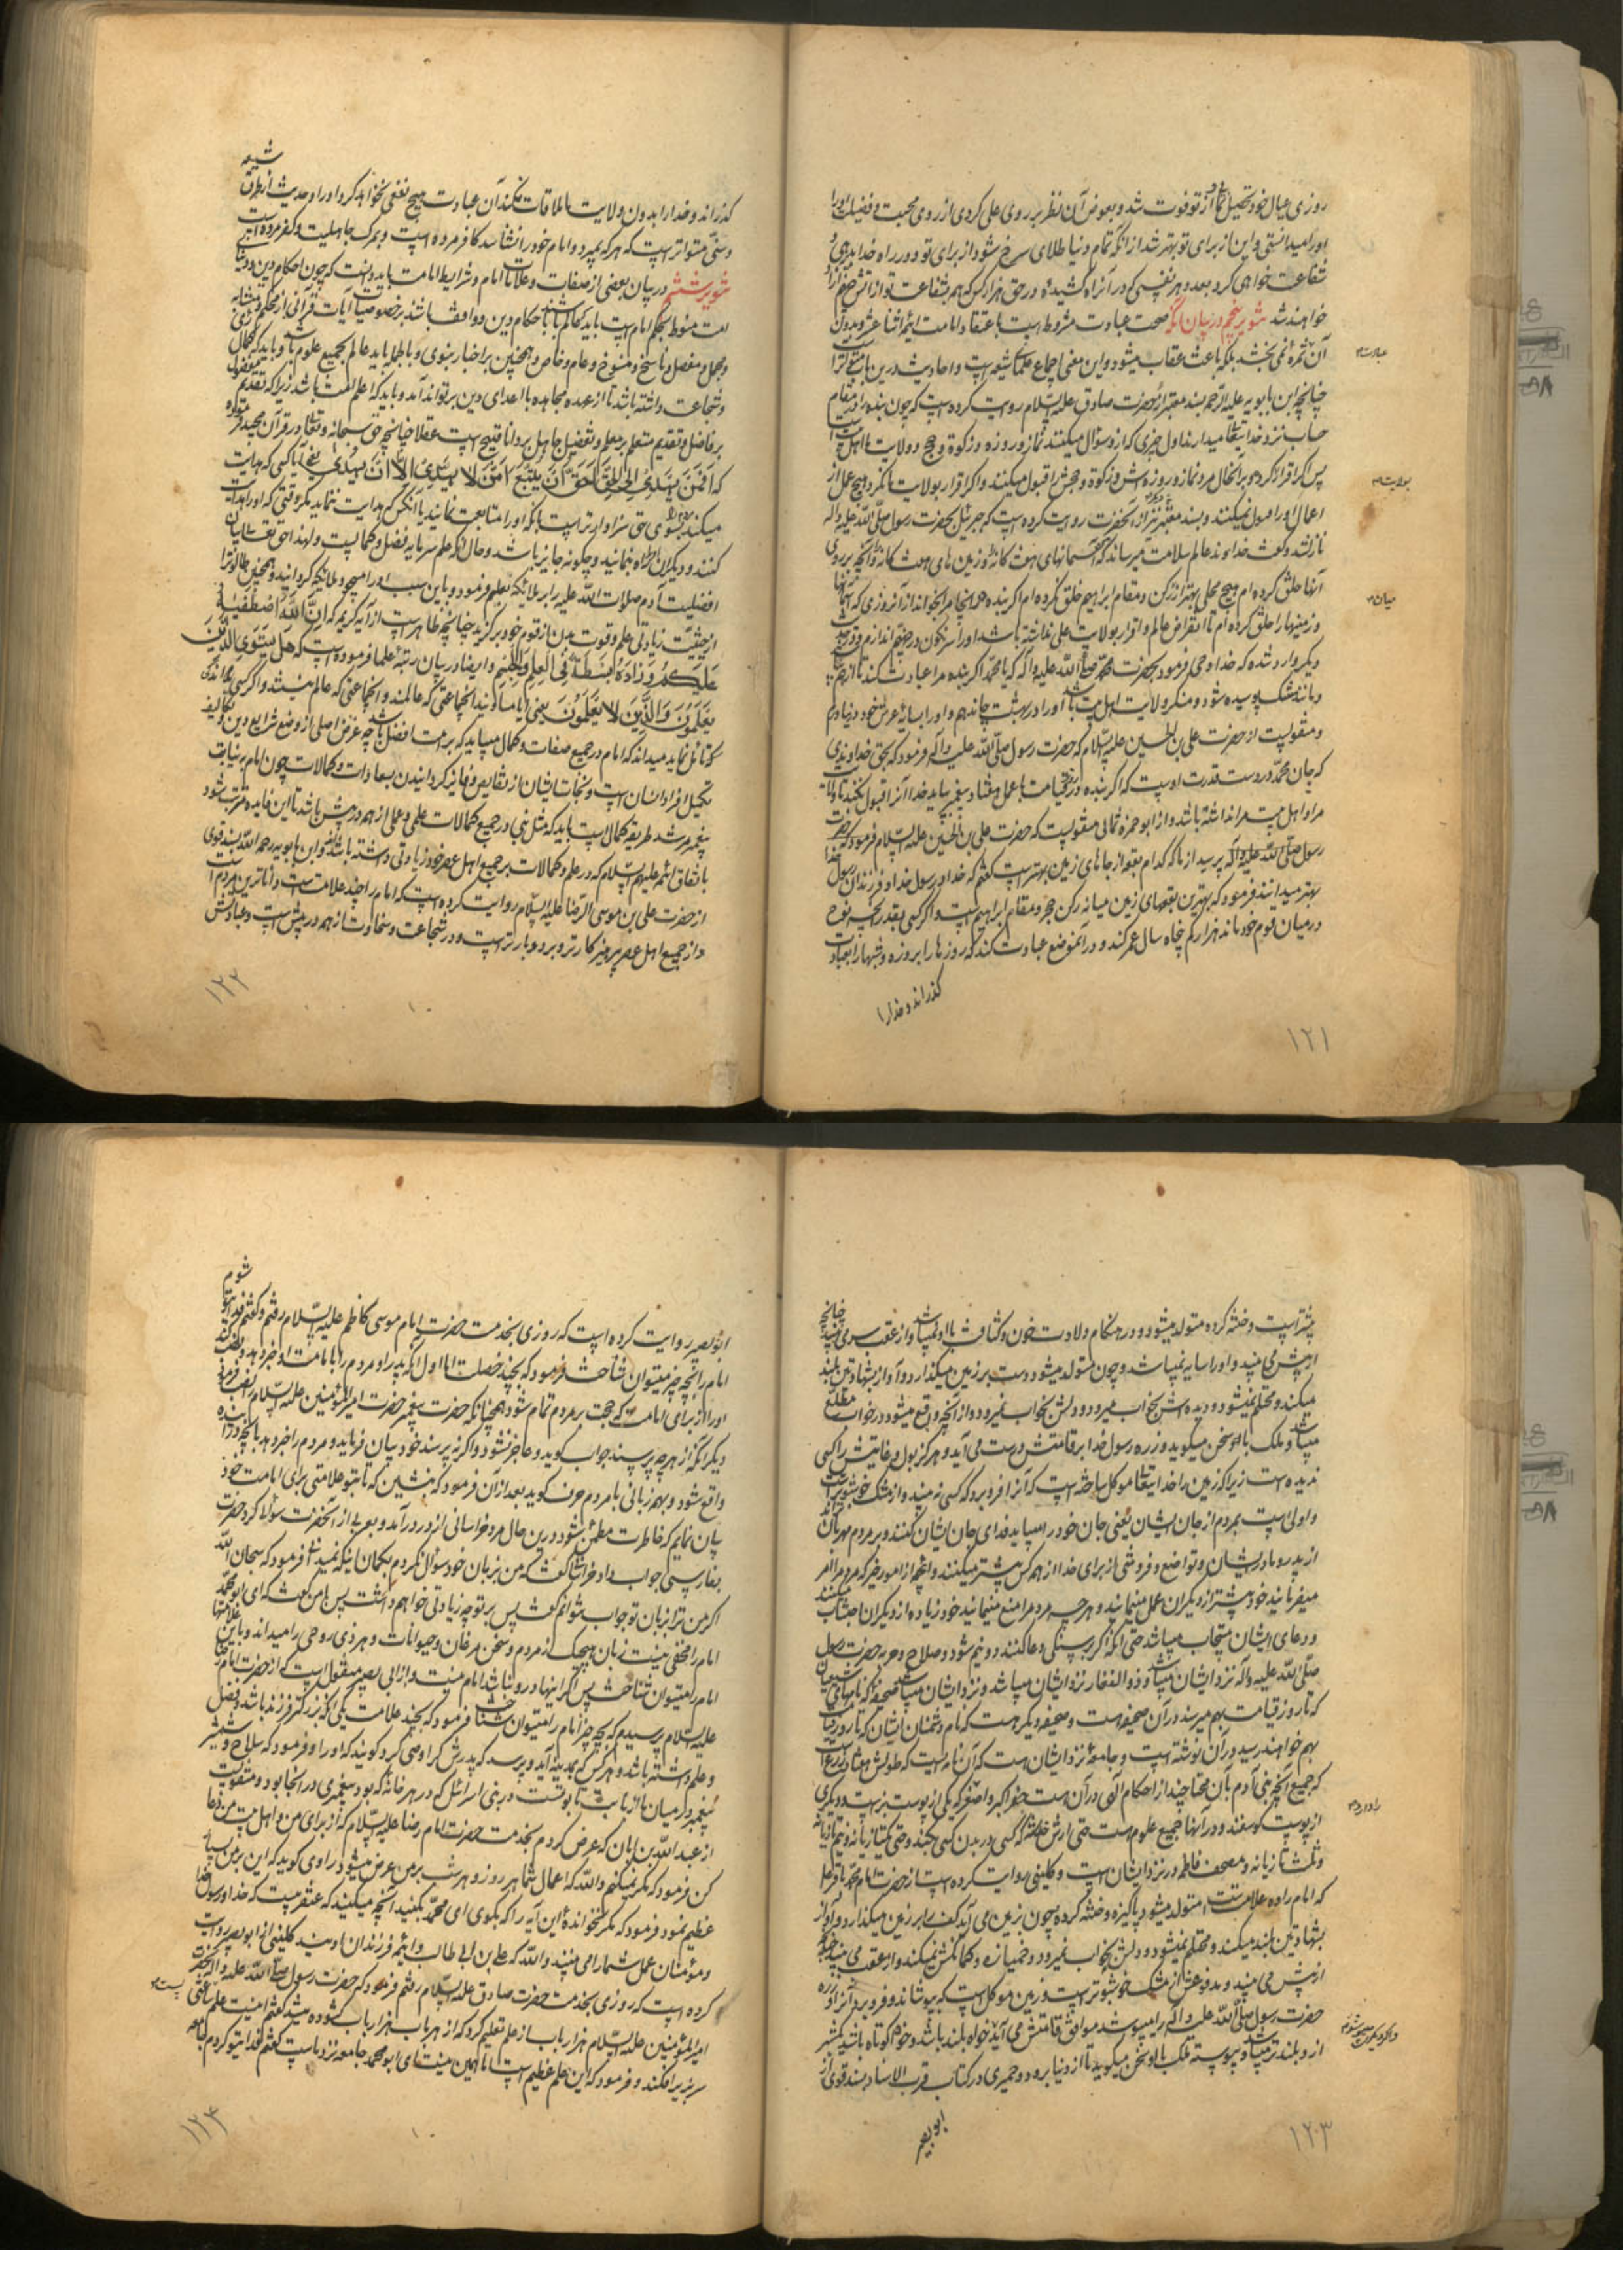 روزی عیال خود تحصیل نمائی از تو فوت شد و بعوض آن نظر بر روی علی کردی از روی محبت و فضیلت او را
او را میدانستی و این از برای تو بهتر شد از آنکه تمام دنیا طلای سرخ شود از برای تو و در راه خدا بدهی و
شفاعت خواهی کرد بعدد هر نفسی که در آن راه کشیدهٔ در حق هزار کس که همه بشفاعت تو از آتش جهنم آزاد
خواهند شد تنویر پنجم در بیان آنکه صحت عبادت مشروط است باعتقاد امامت ائمه اثنا عشر و بدون
آن ثمره نمی بخشد بلکه باعث عقاب میشود و این معنی اجماع علمای شیعه است و احادیث درین باب متواتر است
عبارت
چنانچه ابن بابویه علیه الرحمه بسند معتبر از حضرت صادق علیه السلام روایت کرده است که چون بنده را در مقام
حساب نزد خدایتعالی میدارند اول چیزی که ازو سؤال میکنند نماز و روزه و زکوة و حج و ولایت ما اهل بیت است
پس اگر اقرار کرده و بر آنحال مرد نماز و روزه اش و زکوة و حجش را قبول میکنند و اگر اقرار بولایت ما نکرد هیچ عمل از
بولایت
اعمال او را قبول نمیکنند و بسند معتبر دیگر نیز از آنحضرت روایت کرده است که جبرئیل بحضرت رسول صلی الله علیه و آله
نازل شد و گفت خداوند عالم سلامت میرساند که آسمانهای هفت گانه و زمین های هفت گانه و آنچه بر روی
آنها خلق کرده ام و هیچ محلی بهتر از رکن و مقام ابراهیم خلق نکرده ام اگر بنده در اینجا مرا بخواند از آنروزی که آسمانها
میان
و زمینها را خلق کرده ام تا انقراض عالم و اقرار بولایت علی نداشته باشد او را سرنگون در جهنم اندازم و در حدیث
دیگر وارد شده که خدا وحی فرمود بحضرت محمد صلی الله علیه و آله که یا محمد اگر بنده مرا عبادت کند تا از هم بپاشد
و مانند مشک پوسیده شود و منکر ولایت اهل بیت باشد او را در بهشت جا ندهم و او را بسایهٔ عرش خود در نیاورم
و منقولیست از حضرت علی بن الحسین علیه السلام که حضرت رسول صلی الله علیه و آله فرمود که بحق خداوندی
که جان محمد در دست قدرت اوست که اگر بنده در روز قیامت با عمل هفتاد پیغمبر بیاید خدا آنرا قبول نکند تا ولایت
مرا و اهل بیت مرا نداشته باشد و از ابو حمزه ثمالی منقولیست که حضرت علی بن الحسین علیه السلام فرمود که حضرت
رسول صلی الله علیه و آله پرسید از ما که کدام بقعه از جاهای زمین بهتر است گفتم که خدا و رسول خدا و فرزندان رسول خدا
بهتر میدانند فرمود که بهترین بقعهای زمین میانه رکن حجر و مقام ابراهیم است و اگر کسی بقدر آنچه نوح
در میان قوم خود ماند هزار کم پنجاه سال عمر کند و در آنموضع عبادت کند که روزها را بروزه و شبها را بعبادت
گذراند و خدا را
۱۲۱
شیعه
گذراند و خدا را بدون ولایت ما ملاقات کند آن عبادت هیچ نفعی نخواهد کرد او را و حدیث از طرق
و سنی متواتر است که هر که بمیرد و امام خود را نشناسد کافر مرده است و بمرگ جاهلیت و کفر مرده است
تنویر ششم در بیان بعضی از صفات و علامات امام و شرایط امامت باید دانست که چون احکام دین و دنیای
امت منوط بحکم امام است باید که عالم باشد باحکام دین و واقف باشد بر خصوصیات آیات قرآنی از محکم و متشابه
و مجمل و مفصل و ناسخ و منسوخ و عام و خاص و همچنین بر اخبار نبوی و بالجمله باید عالم بجمیع علوم باشد و باید که کمال
و شجاعت داشته باشد تا از عهده مجاهده با اعدای دین بر تواند آمد و باید که اعلم امت باشد زیرا که تقدیم مفضول
بر فاضل و تقدیم متعلم بر معلم و تفضیل جاهل بر دانا قبیح است عقلا چنانچه حق سبحانه و تعالی در قرآن مجید فرموده
که أَفَمَنْ یَهْدِی إِلَی الْحَقِّ أَحَقُّ أَنْ یُتَّبَعَ أَمَّنْ لا یَهِدِّی إِلّا أَنْ یُهْدی یعنی آیا کسی که هدایت
میکند مردم بسوی حق سزاوارتر است بآنکه او را متابعت نمایند یا آنکس که هدایت ننماید مگر وقتی که او را هدایت
کنند و دیگران او را راه بنمایند و چگونه جایز باشد و حال آنکه علم سرمایه فضل و کمالیست و لهذا حق تعالی بیان
افضلیت آدم صلوات الله علیه را بر ملایکه بعلم فرمود و باین سبب او را مسجود ملایکه گردانید و همچنین طالوت را
از حیثیت زیادتی علم و قوت بدن از قوم خود برگزید چنانچه ظاهر است از آیه کریمه که إِنَّ اللهَ اصْطَفیهُ
عَلَیْکُمْ وَ زادَهُ بَسْطَةً فِی الْعِلْمِ وَ الْجِسْمِ و ایضا در بیان رتبهٔ علما فرموده است که هَلْ یَسْتَوِی الَّذینَ
یَعْلَمُونَ وَ الَّذینَ لا یَعْلَمُونَ یعنی آیا مساویند آنجماعتی که عالمند و آنجماعتی که عالم نیستند و اگر کسی اندکی
تأمل نماید میداند که امام در جمیع صفات و کمال میباید که بر امت افضل باشد چه غرض اصلی از وضع شرایع دین و تکالیف
تکمیل افراد انسان است و نجات ایشان از نقایص و فایز گردانیدن بسعادات و کمالات چون امام بنیابت
پیغمبر مرشد طریقه کمال است باید که مثل نبی در جمیع کمالات علمی و عملی از همه در پیش باشد تا این فایده مترتب شود
باتفاق ائمه علیهم السلام که در علم و کمالات بر جمیع اهل عصر خود زیادتی داشته باشند و ابن بابویه رحمه الله بسند قوی
از حضرت علی بن موسی الرضا علیه السلام روایت کرده است که امام را چند علامت است داناترین مردم است
و از جمیع اهل عصر پرهیزکارتر و بردبارتر است و در شجاعت و سخاوت از همه در پیش است و عبادتش
۱۲۲
بیشتر است و ختنه کرده متولد میشود و در هنگام ولادت خون و کثافت با او نمیباشد و از عقب سر می بیند چنانچه
از پیش می بیند و او را سایه نمیباشد و چون متولد میشود دست بر زمین میگذارد و آواز بشهادتین بلند
میکند و محتلم نمیشود و دیده اش بخواب میرود و دلش بخواب نمیرود و از آنچه واقع میشود در خواب مطلع
میباشد و ملک با او سخن میگوید و زره رسول خدا بر قامتش درست می آید و هرگز بول و غایتش را کسی
ندیده است زیرا که زمین را خدایتعالی موکل ساخته است که آنرا فرو برد که کسی نه بیند و از مشک خوشبوتر است
و اولی است بمردم از جان ایشان یعنی جان خود را میباید فدای جان ایشان کنند و بر مردم مهربان‌تر
از پدر و مادر ایشان و تواضع و فروتنی از برای خدا از همه کس بیشتر میکنند و آنچه از امور خیر که مردم را امر
میفرمایند خود بیشتر از دیگران عمل مینمایند و هر چه مردم را منع مینمایند خود زیاده از دیگران اجتناب میکنند
و دعای ایشان مستجاب میباشد حتی آنکه اگر بر سنگی دعا کنند دو نیم شود و صلاح و حربه حضرت رسول
صلی الله علیه و آله نزد ایشان میباشد و ذو الفقار نزد ایشان میباشد و نزد ایشان میباشد صحیفه که نامهای شیعیان
که تا روز قیامت بهم میرسند در آن صحیفه هست و صحیفه دیگر هست که نام دشمنان ایشان که تا روز قیامت
بهم خواهند رسید در آن نوشته است و جامعه نزد ایشان هست که آن نامه ایست که طولش هفتاد ذرع است
که جمیع آنچه بنی آدم بآن محتاجند از احکام الهی در آن هست جفر اکبر و اصغر که یکی از پوست بز است و دیگری
از پوست گوسفند و در آنها جمیع علوم هست حتی ارش خدشه که کسی در بدن کسی بکند و حتی یکتازیانه و نیم تازیانه
و ثلث تازیانه و مصحف فاطمه در نزد ایشان است و کلینی روایت کرده است از حضرت امام محمد باقر علیه السلام
که امام را ده علامت است متولد میشود پاکیزه و ختنه کرده و چون بزمین می آید کف را بر زمین میگذارد و آواز
بشهادتین بلند میکند و محتلم نمیشود و دلش بخواب نمیرود و خمیازه و کمانکش نمیکند و از عقب می بیند چنانچه
از پیش می بیند و مدفوعش از مشک خوشبوتر است و زمین موکل است که بپوشاند و فرو برد آنرا و زره
حضرت رسول صلی الله علیه و آله را میپوشد موافق قامتش می آید خواه بلند باشد و خواه کوتاه باشد
ازو بلندتر میباشد و پیوسته ملک با او سخن میگوید تا از دنیا برود و حمیری در کتاب قرب الاسناد بسند قوی از
ابو بصیر
۱۲۳
ابو بصیر روایت کرده است که روزی بخدمت حضرت امام موسی کاظم علیه السلام رفتم و گفتم فدای تو شوم
امام را بچه چیز میتوان شناخت فرمود که بچند خصلت اما اول آنکه پدر او مردم را بامامت او خبر دهد و نصب کند
او را از برای امامت که حجت بر مردم تمام شود همچنانکه حضرت پیغمبر حضرت امیر المؤمنین علیه السلام را نص فرمود
دیگر آنکه از هر چه پرسند جواب گوید و عاجز نشود و اگر نپرسند خود بیان فرماید و مردم را خبر دهد بآنچه در آینده
واقع شود و بهمه زبانی با مردم حرف گوید بعد از آن فرمود که بنشین که تا بتو علامتی برای امامت خود
بیان نمایم که خاطرت مطمئن شود درین حال مرد خراسانی از در در آمد و بعربی از آنحضرت سؤال کرد حضرت
بفارسی جواب داد خراسانی گفت که من بزبان خود سؤال نکردم بگمان اینکه نمیدانی فرمود که سبحان الله
اگر من ترا بزبان تو جواب نتوانم گفت پس بر تو چه زیادتی خواهم داشت پس با من گفت که ای ابو محمد
امام را مخفی نیست زبان هیچیک از مردم و سخن مرغان و حیوانات و هر ذی روحی را میداند و باین علامتها
امام را میتوان شناخت پس اگر اینها درو نباشد امام نیست و از ابی بصیر منقول است که از حضرت امام رضا
علیه السلام پرسیدم که بچه چیز امام را میتوان شناخت فرمود که بچند علامت یکی آنکه بزرگتر فرزند باشد و فضل
و علم داشته باشد و هر کس که بمدینه آید و پرسد که پدرش کرا وصی کرد گویند که او را و فرمود که سلاح و شمشیر
پیغمبر در میان ما از بابت تابوتست در بنی اسرائیل که در هر خانه که بود پیغمبری در آنجا بود و منقولست
از عبد الله بن ابان که عرض کردم بخدمت حضرت امام رضا علیه السلام که از برای من و اهل بیت من دعا
کن فرمود که مگر نمیکنم والله که اعمال شما هر روز و هر شب بر من عرض میشود راوی گوید که این بر من بسیار
عظیم نمود فرمود که مگر نخواندهٔ این آیه را که بگوی ای محمد بکنید آنچه میکنید که عنقریب است که خدا و رسول خدا
و مؤمنان عمل شما را می بینند والله که علی بن ابی طالب و ائمه فرزندان اوهستند کلینی از ابو بصیر روایت
کرده است که روزی بخدمت حضرت صادق علیه السلام رفتم فرمود که حضرت رسول صلی الله علیه و آله بحضرت
امیر المؤمنین علیه السلام هزار باب از علم تعلیم کرد که از هر باب هزار باب گشوده میشد گفتم اینست علم ساعتی
سر بزیر افکند و فرمود که این علم عظیم است اما همین نیست ای ابو محمد جامعه نزد ماست گفتم فدای تو گردم جامعه
۱۲۴